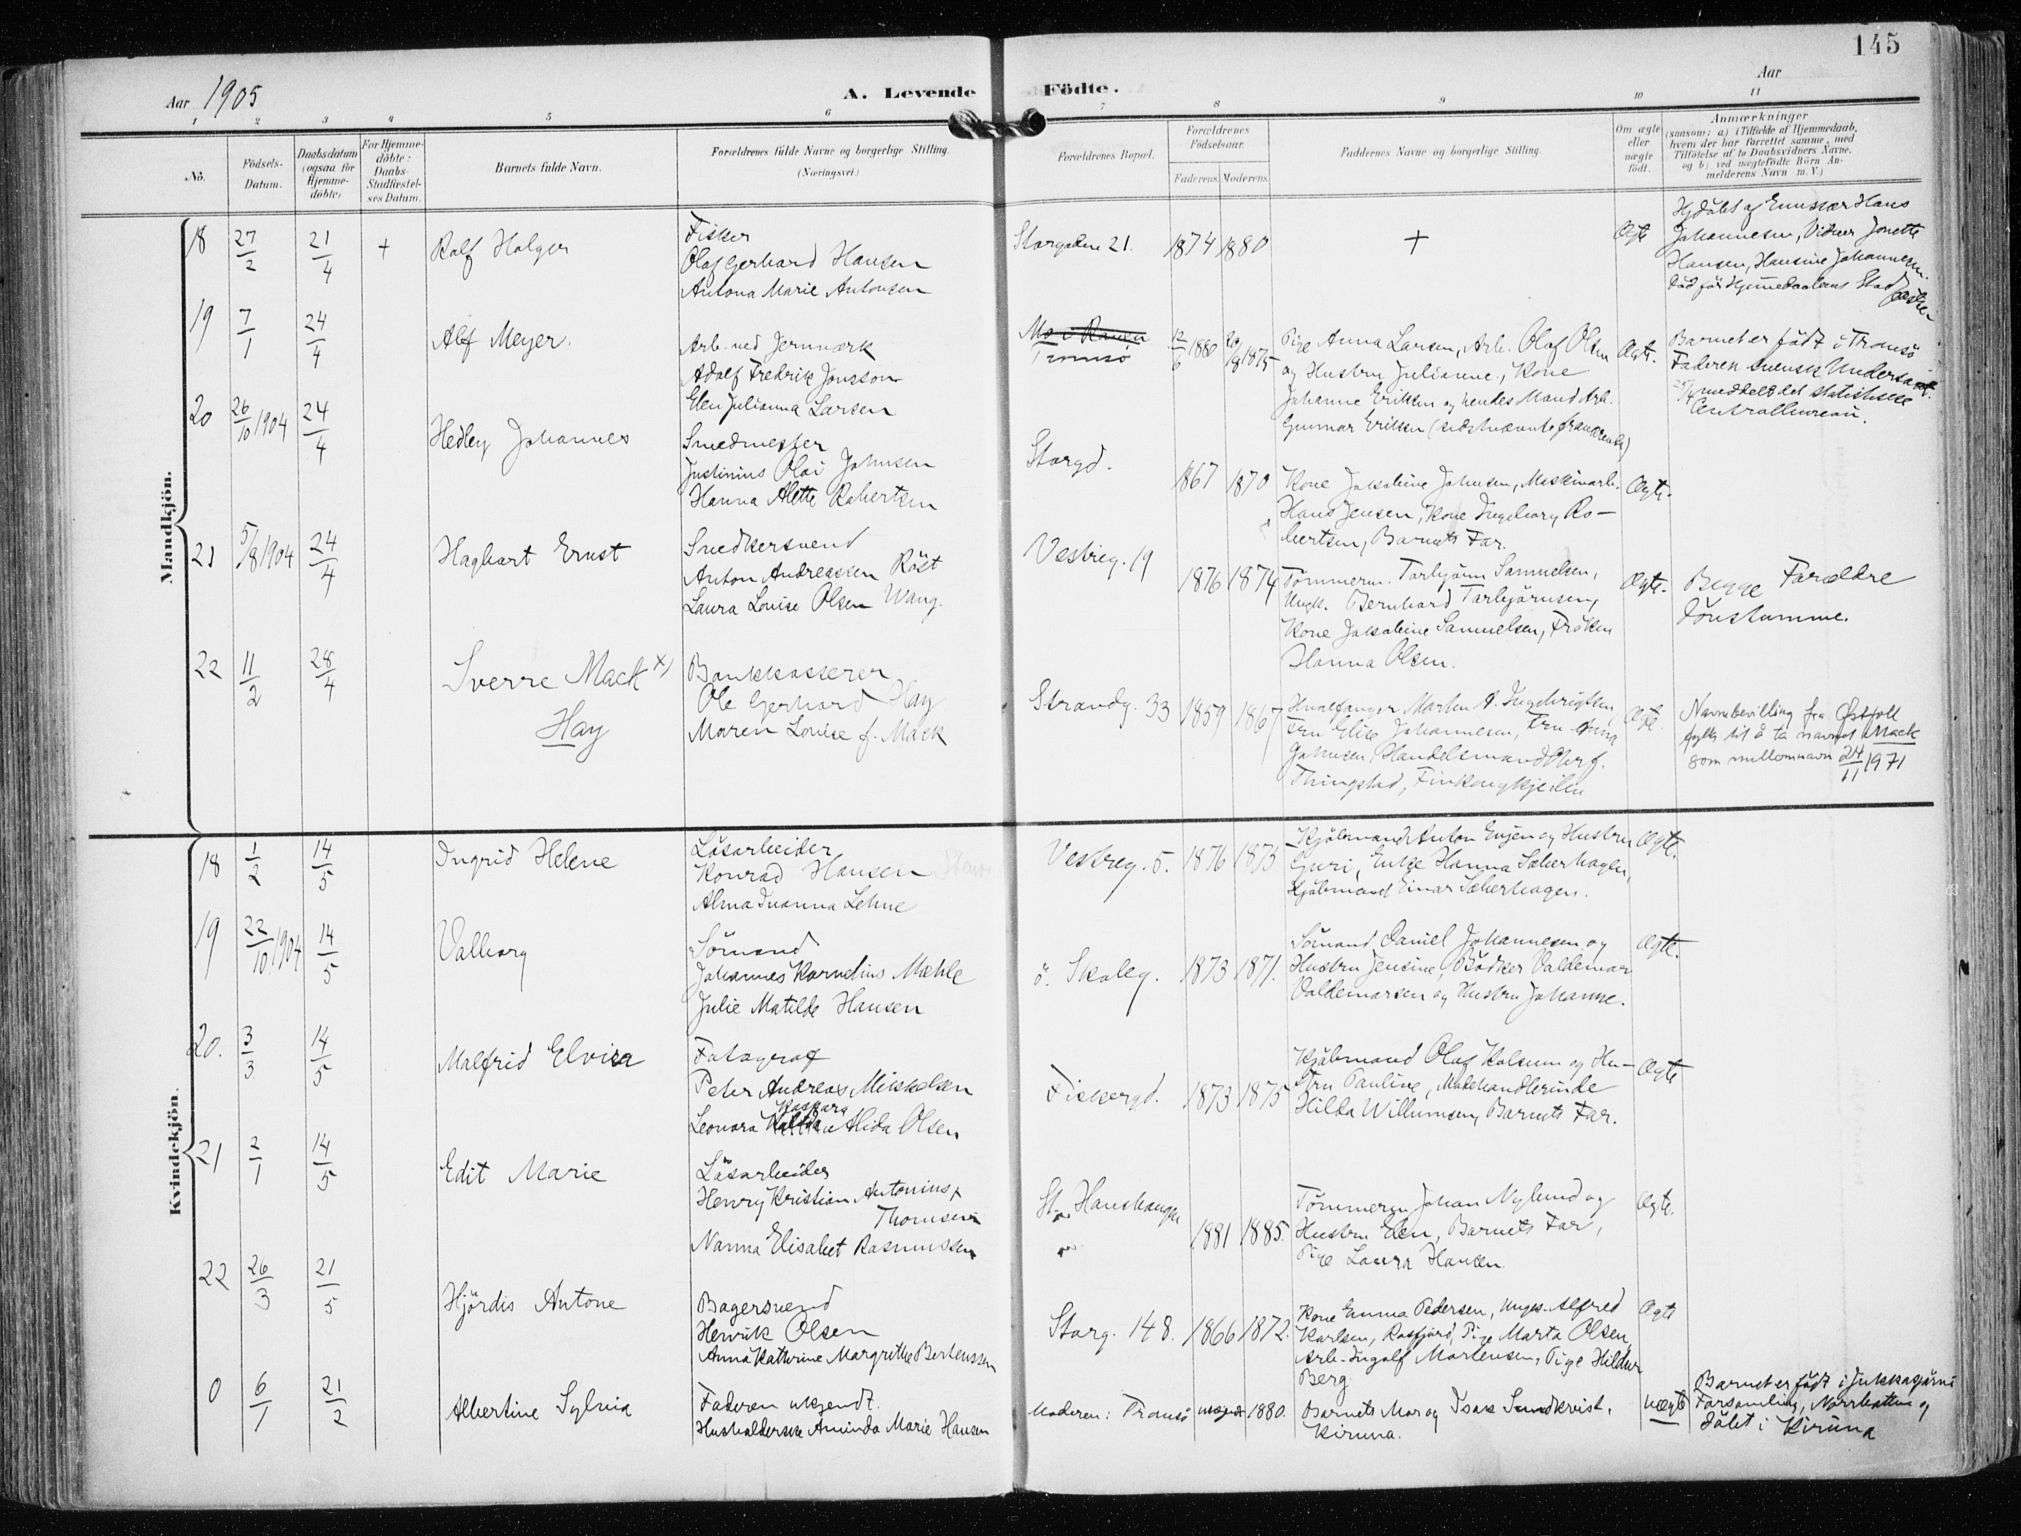 145
Aar 1905
A. Levende Födte.
Aar
1 2 3 4 5 6 7 8 9 10 11
No.
Födsels-
Datum.
Daabsdatum
(ogsaa for
Hjemme-
döbte)
For Hjemme-
döbte:
Daabs-
Stadfæstel-
ses Datum.
Barnets fulde Navn.
Forældrenes fulde Navne og borgerlige Stilling.
(Næringsvei.)
Forældrenes Bopæl.
Forældrenes
Födselsaar.
Faderens. Moderens.
Faddernes Navne og borgerlige Stilling.
Om ægte
eller
uægte
født.
Anmærkninger
(saasom: a) i Tilfælde af Hjemmedaab,
hvem der har forrettet samme, med
Tilföielse af to Daabsvidners Navne,
og b) ved uegtefödte Börn An-
melderens Navn m. V.)
Mandkjön.
18 27/2 21/4 + Ralf Holger
Fisker
Olaf Gerhard Hansen
Antona Marie Antonsen
Storgaden 21. 1874 1880
+
Ægte
Hjdöbt af Emissær Hans
Johannesen, Vidner Jonette
Hansen, Hansine Johannesen.
Död før Hjemmedaabens Stadfæstelse
19 7/1 24/4 Alf Meyer.
Arb. ved Jernværk
Adolf Fredrik Jonsson
Elen Julianna Larsen
Mo i Ranen
Tromsö
12/6 1880 1875
Pige Anna Larsen, Arb. Olaf Olsen
og Hustru Julianne, Kone
Johanne Eriksen og hendes Mand Arb.
Gunnar Eriksen (sidstnævnte fraværende)
Ægte.
Barnet er födt i Tromsö
Faderen svensk Undersaat.
meddelt det statistiske
Centralbureau.
20 26/10 1904 24/4 Hedley Johannes
Smedmester
Justinius Olai Johnsen
Hanna Alette Robertsen
Storgd.
1867 1870
Kone Jakobine Johnsen, Maskinarb.
Hans Jensen, Kone Ingeborg Ro-
bertsen, Barnets Far.
Ægte.
21 5/8 1904 24/4 Hagbart Ernst
Snedkersvend
Anton Andreassen Röst
Laura Louise Olsen Wang.
Vestreg. 19
1876 1874
Tömmerm. Torbjörn Samuelsen,
Ungk. Bernhard Torbjörnsen,
Kone Jakobine Samuelsen, Fröken
Hanna Olsen.
Ægte.
Begge Forældre
Dövstumme.
22 11/2 28/4 Sverre Mack x)
Hay
Bankkasserer
Ole Gerhard Hay
Maren Louise f. Mack
Strandg. 33 1859 1867
Hvalfanger Morten A. Ingebrigtsen,
Fru Elise Johannesen, Fru Anna
Johnsen, Handelsmand Olaf
Thingstad, Finkongkjeilen
Ægte.
Navnebevilling fra Østfold
fylke til å ta navnet Mack
som mellomnavn 24/11 1971
Kvindekjön.
18 1/2 14/5 Ingrid Helene
Lösarbeider
Konrad Hansen
Alma Ivanna Lehne
Vestreg. 5. 1876 1873
Kjöbmand Anton Evjen og Hustru
Guri, Enke Hanna Sæterhagen,
Kjöbmand Einar Sæterhagen.
Ægte.
19 22/10 1904 14/5 Valborg
Sömand
Johannes Kornelius Mæhle
Julie Matilde Hansen
ö. Skoleg. 1873 1871.
Sömand Daniel Johannesen og
Hustru Jensine, Bödker Valdemar
Valdemarsen og Hustru Johanne.
Ægte.
20. 3/3 14/5 Malfrid Elvira
Fotograf
Peter Andreas Mikkelsen
Kaspara
Leonora Alida Olsen
Fiskergd. 1873 1875
Kjöbmand Olaf Kolsum og Hu-
stru Pauline, Modehandlerinde
Hilda Willumsen, Barnets Far.
Ægte
21 2/1 14/5 Edit Marie
Lösarbeider
Henry Kristian Antonius
Thomsen
Nanna Elisabet Rasmussen
St. Hanshaugen
1881 1885.
Tömmerm. Johan Nylund og
Hustru Elen, Barnets Far,
Pige Laura Hansen.
Ægte.
22 26/3 21/5 Hjördis Antone
Bagersvend
Henrik Olsen
Anna Kathrine Margrethe Berteussen
Storg. 148. 1866 1872.
Kone Emma Pedersen, Ungk. Alfred
Karlsen, Rosfjord, Pige Marta Olsen,
Arb. Ingolf Mortensen, Pige Hildur
Berg
Ægte
0 6/1 21/2 Albertine Sylvia
Faderen ukjendt.
Husholderske Aminda Marie Hansen
Moderen: Tromsö 1880.
Barnets Mor og Isak Sundkvist,
Kiruna.
uægte
Barnet er födt i Jukkasjärvi
Forsamling, Norrbotten og
döbt i Kiruna